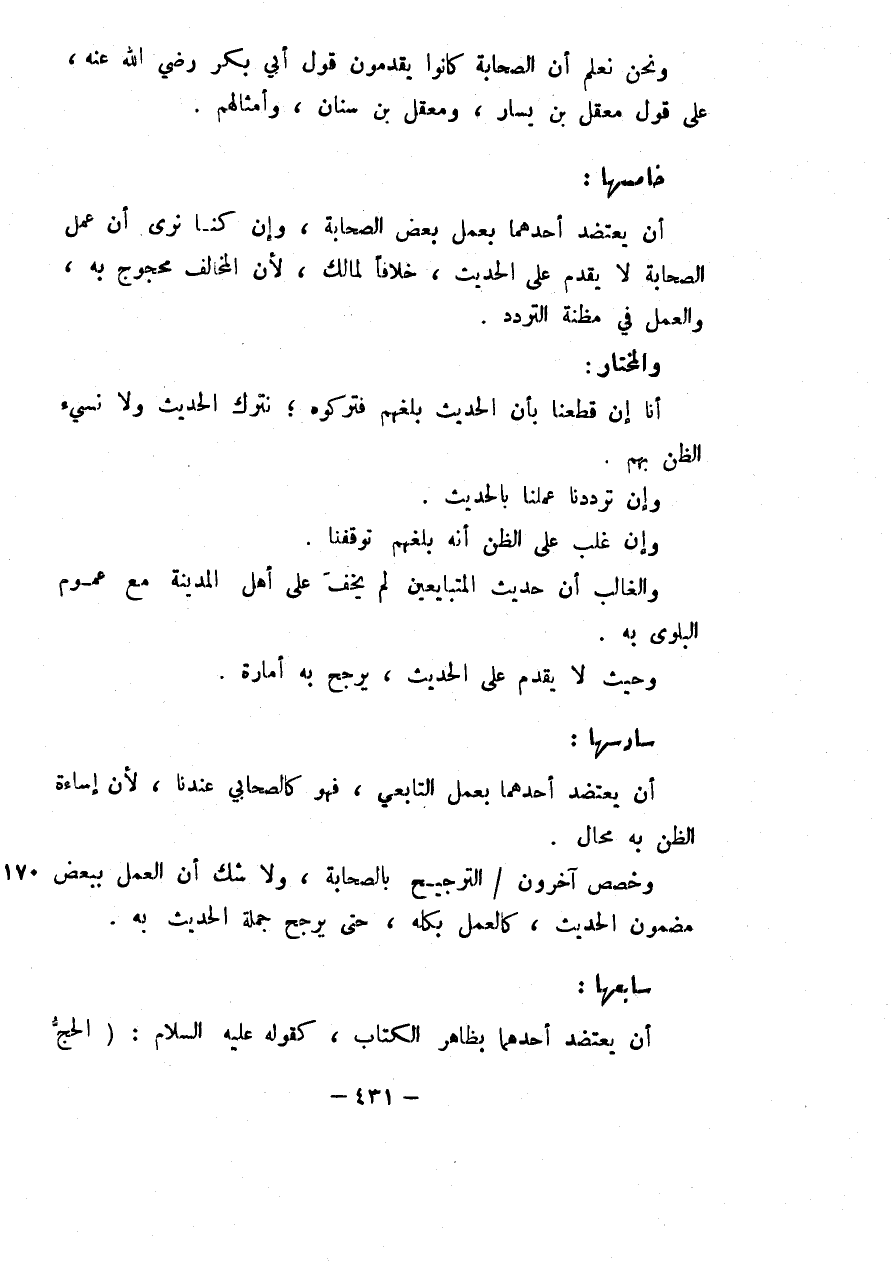 ونحن نعلم أن الصحابة كانوا يقدمون قول أبي بكر رضي الله عنه ،
على قول معقل بن يسار ، ومعقل بن سنان ، وأمثالهم .
خامسها :
أن يعتضد أحدهما بعمل بعض الصحابة ، وإن كنـا نرى أن عمل
الصحابة لا يقدم على الحديث ، خلافاً لمالك ، لأن المخالف محجوج به ،
والعمل في مظنة التردد .
والمختار :
أنا إن قطعنا بأن الحديث بلغهم فتركوه ؛ نترك الحديث ولا نسيء
الظن بهم .
وإن ترددنا عملنا بالحديث .
وإن غلب على الظن أنه بلغهم توقفنا .
والغالب أن حديث المتبايعين لم يخفَ على أهل المدينة مع عمـوم
البلوى به .
وحيث لا يقدم على الحديث ، يرجح به أمارة .
سادسها :
أن يعتضد أحدهما بعمل التابعي ، فهو كالصحابي عندنا ، لأن إساءة
الظن به محال .
وخصص آخرون / الترجيـح بالصحابة ، ولا شك أن العمل ببعض ١٧٠
مضمون الحديث ، كالعمل بكله ، حتى يرجح جملة الحديث به .
سابعها :
أن يعتضد أحدهما بظاهر الكتاب ، كقوله عليه السلام : ( الحجُّ
– ٤٣١ –